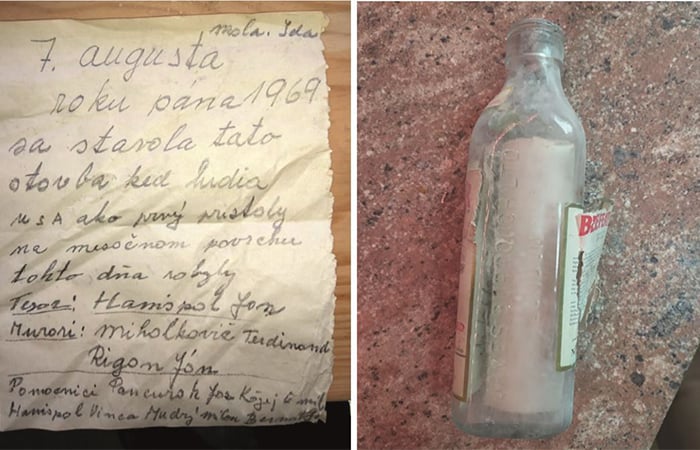 Mola. Ida
7. augusta
roku pána 1969
sa stavola tato
stovba ked ludia
USA ako prvý pristoly
na mesočnom povrchu
tohto dňa robyly
Tesari: Hanispol Jon
Murori: Miholkovič Ferdinand
Rigon Jón
Pomocnici Jos
Hanispol Vinca Mudrý Milon
BEEFE